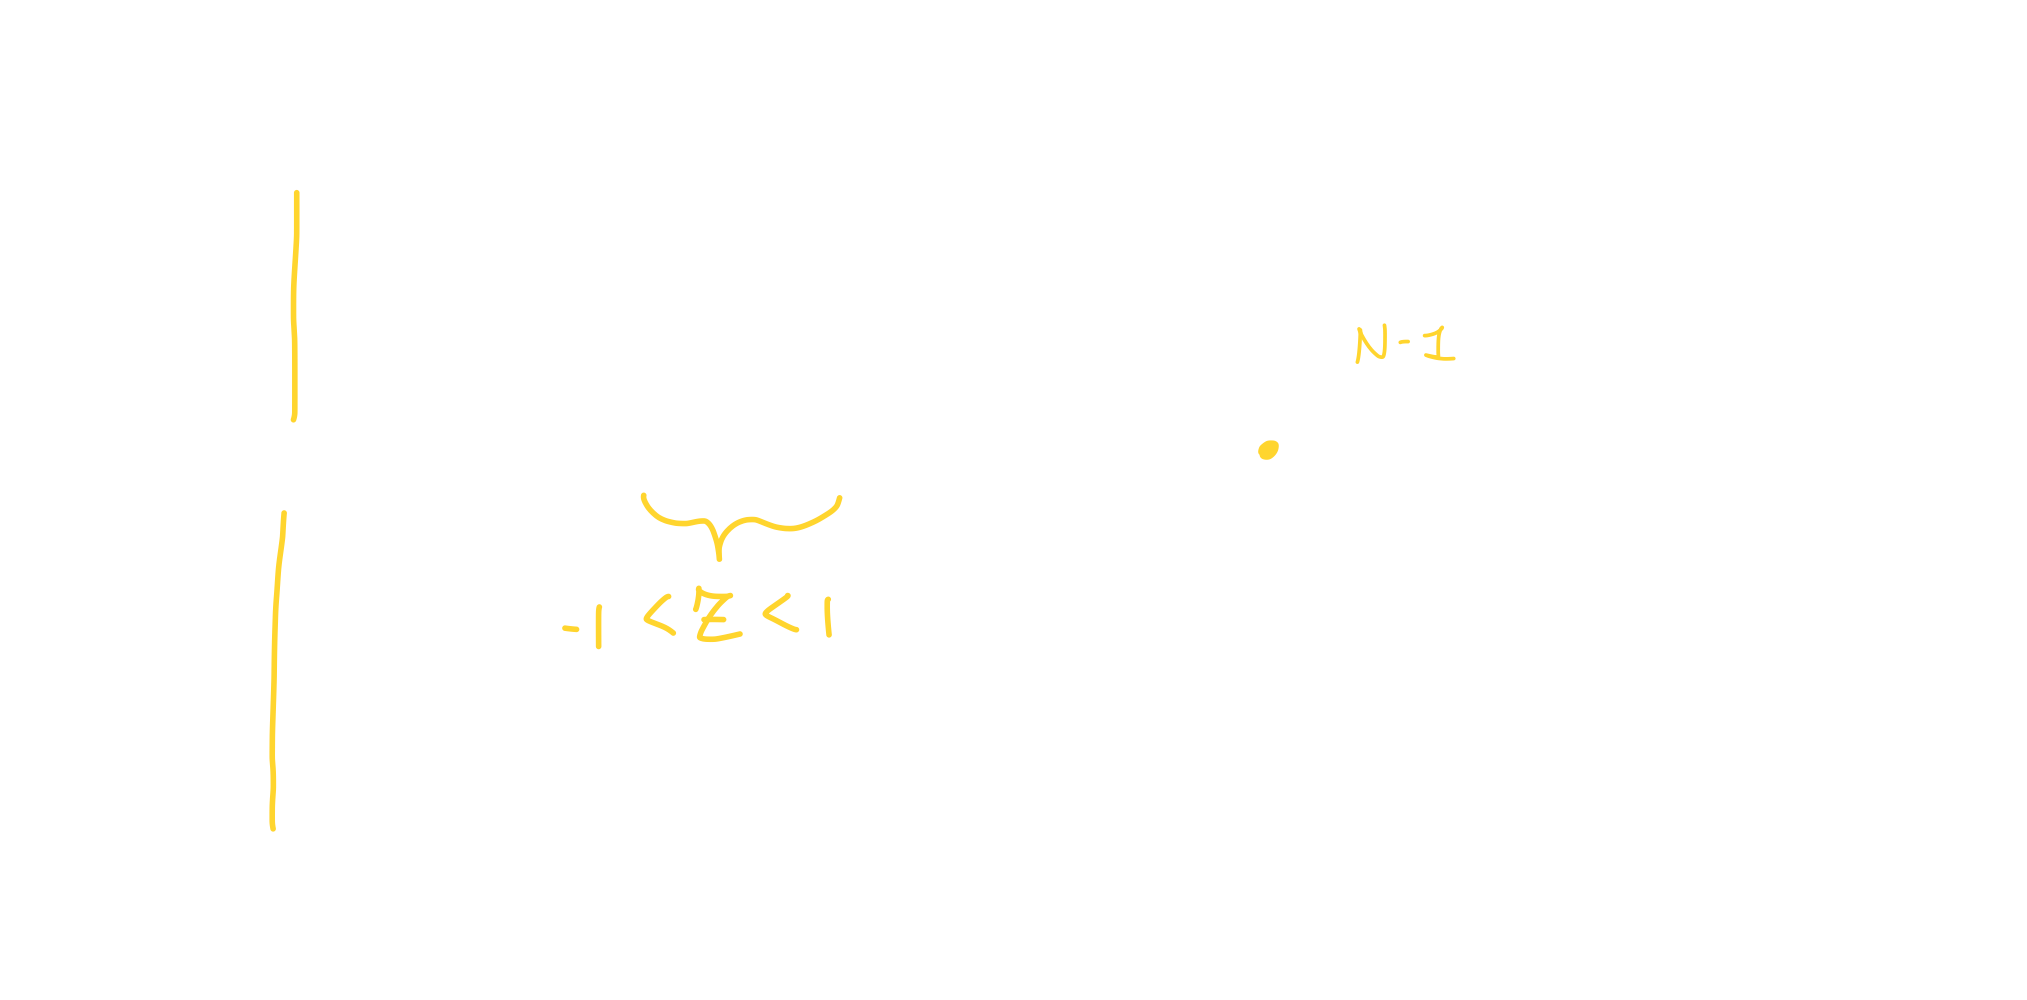 N-1
-1 < Z < 1